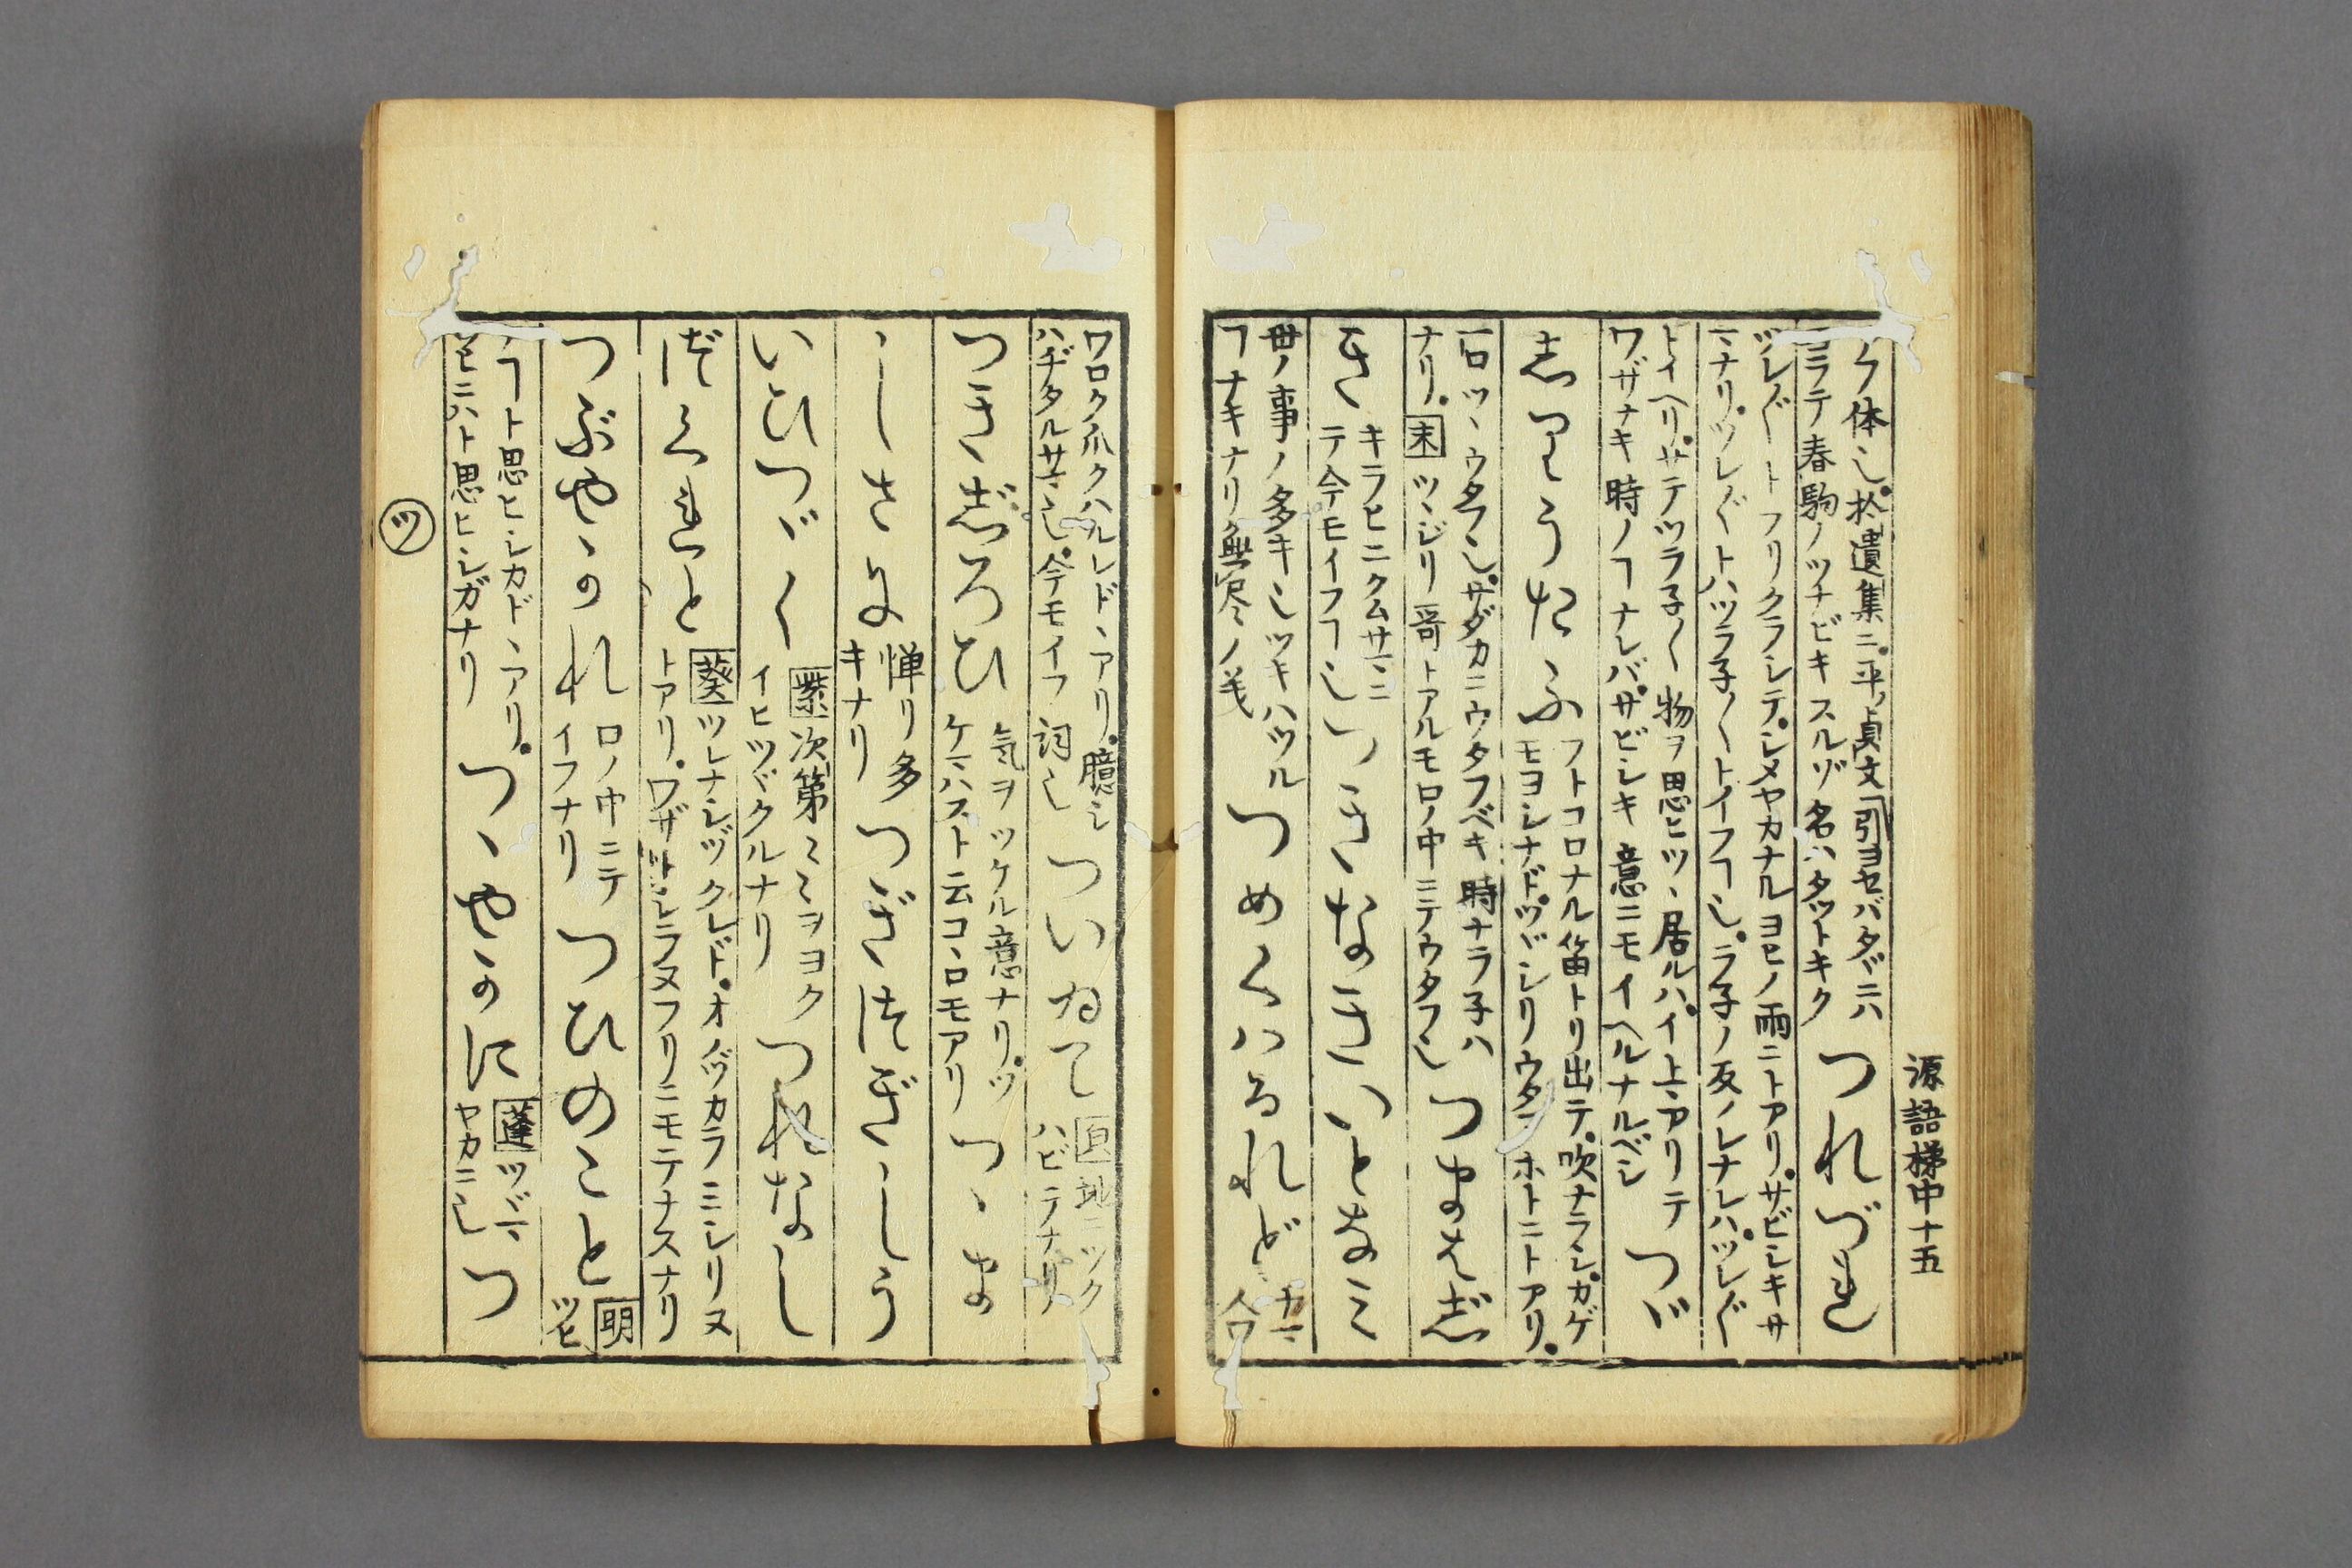 源語梯中十五
ク体也。拾遺集ニ。平ノ貞文「引ヨセバタヾニハ
ヨラテ春駒ノツナビキスルゾ名ハタツトキク
つれづれ
ツレ〴〵トフリクラシテ。シメヤカナルヨヒノ雨ニトアリ。サビシキサ
マナリ。ツレ〴〵トハツラ子〳〵トイフヿ也。ラ子ノ反ノレナレハ。ツレ〴〵
トイヘリ。サテツラ子〳〵物ヲ思ヒツヽ居ルハ。イトマアリテ
ワザナキ時ノヿナレバ。サビシキ意ニモイヘルナルベシ
つゞ
しりうたふ
フトコロナル笛トリ出テ。吹ナラシ。カゲ
モヨシナド。ツヾシリウタフホトニトアリ。
一口ツヽウタフ也。サダカニウタフベキ時ナラ子ハ
ナリ。末ツヽジリ哥トアルモ口ノ中ニテウタフ也
つまはじ
き
キラヒニクムサマニ
テ今モイフヿ也
つきなきいとなみ
世ノ事ノ多キ也ツキハツル
ヿナキナリ無尽ノ義
つめくハるれど
ナマ
人ワ
ワロク爪クハルレドヽアリ。臆シ
ハヂタルサマ也。今モイフ詞也
ついゐて
地ニツク
ハビテナリ
つきじろひ
気ヲツケル意ナリ。ツ
ケマハスト云コヽロモアリ
つゝま
しさに
憚リ多
キナリ
つぎ〳〵しう
いひつゞく
紫次第〻〻ヲヨク
イヒツヾクルナリ
つれなし
づくれと
葵ツレナシヅクレド。オノヅカラミシリヌ
トアリ。ワザトシラヌフリニモテナスナリ
つぶやかれ
口ノ中ニテ
イフナリ
つひのこと
明
ツヒ
ノヿト思ヒシカドヽアリ。
ツヒニハト思ヒシガナリ
つゝやかに
蓬ツヾマ
ヤカニ也
つ
ツ